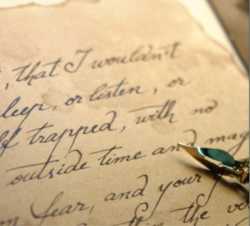 , that I wouldn't
sleep, or listen, or
trapped, with no
outside time and may
fear, and your
in the